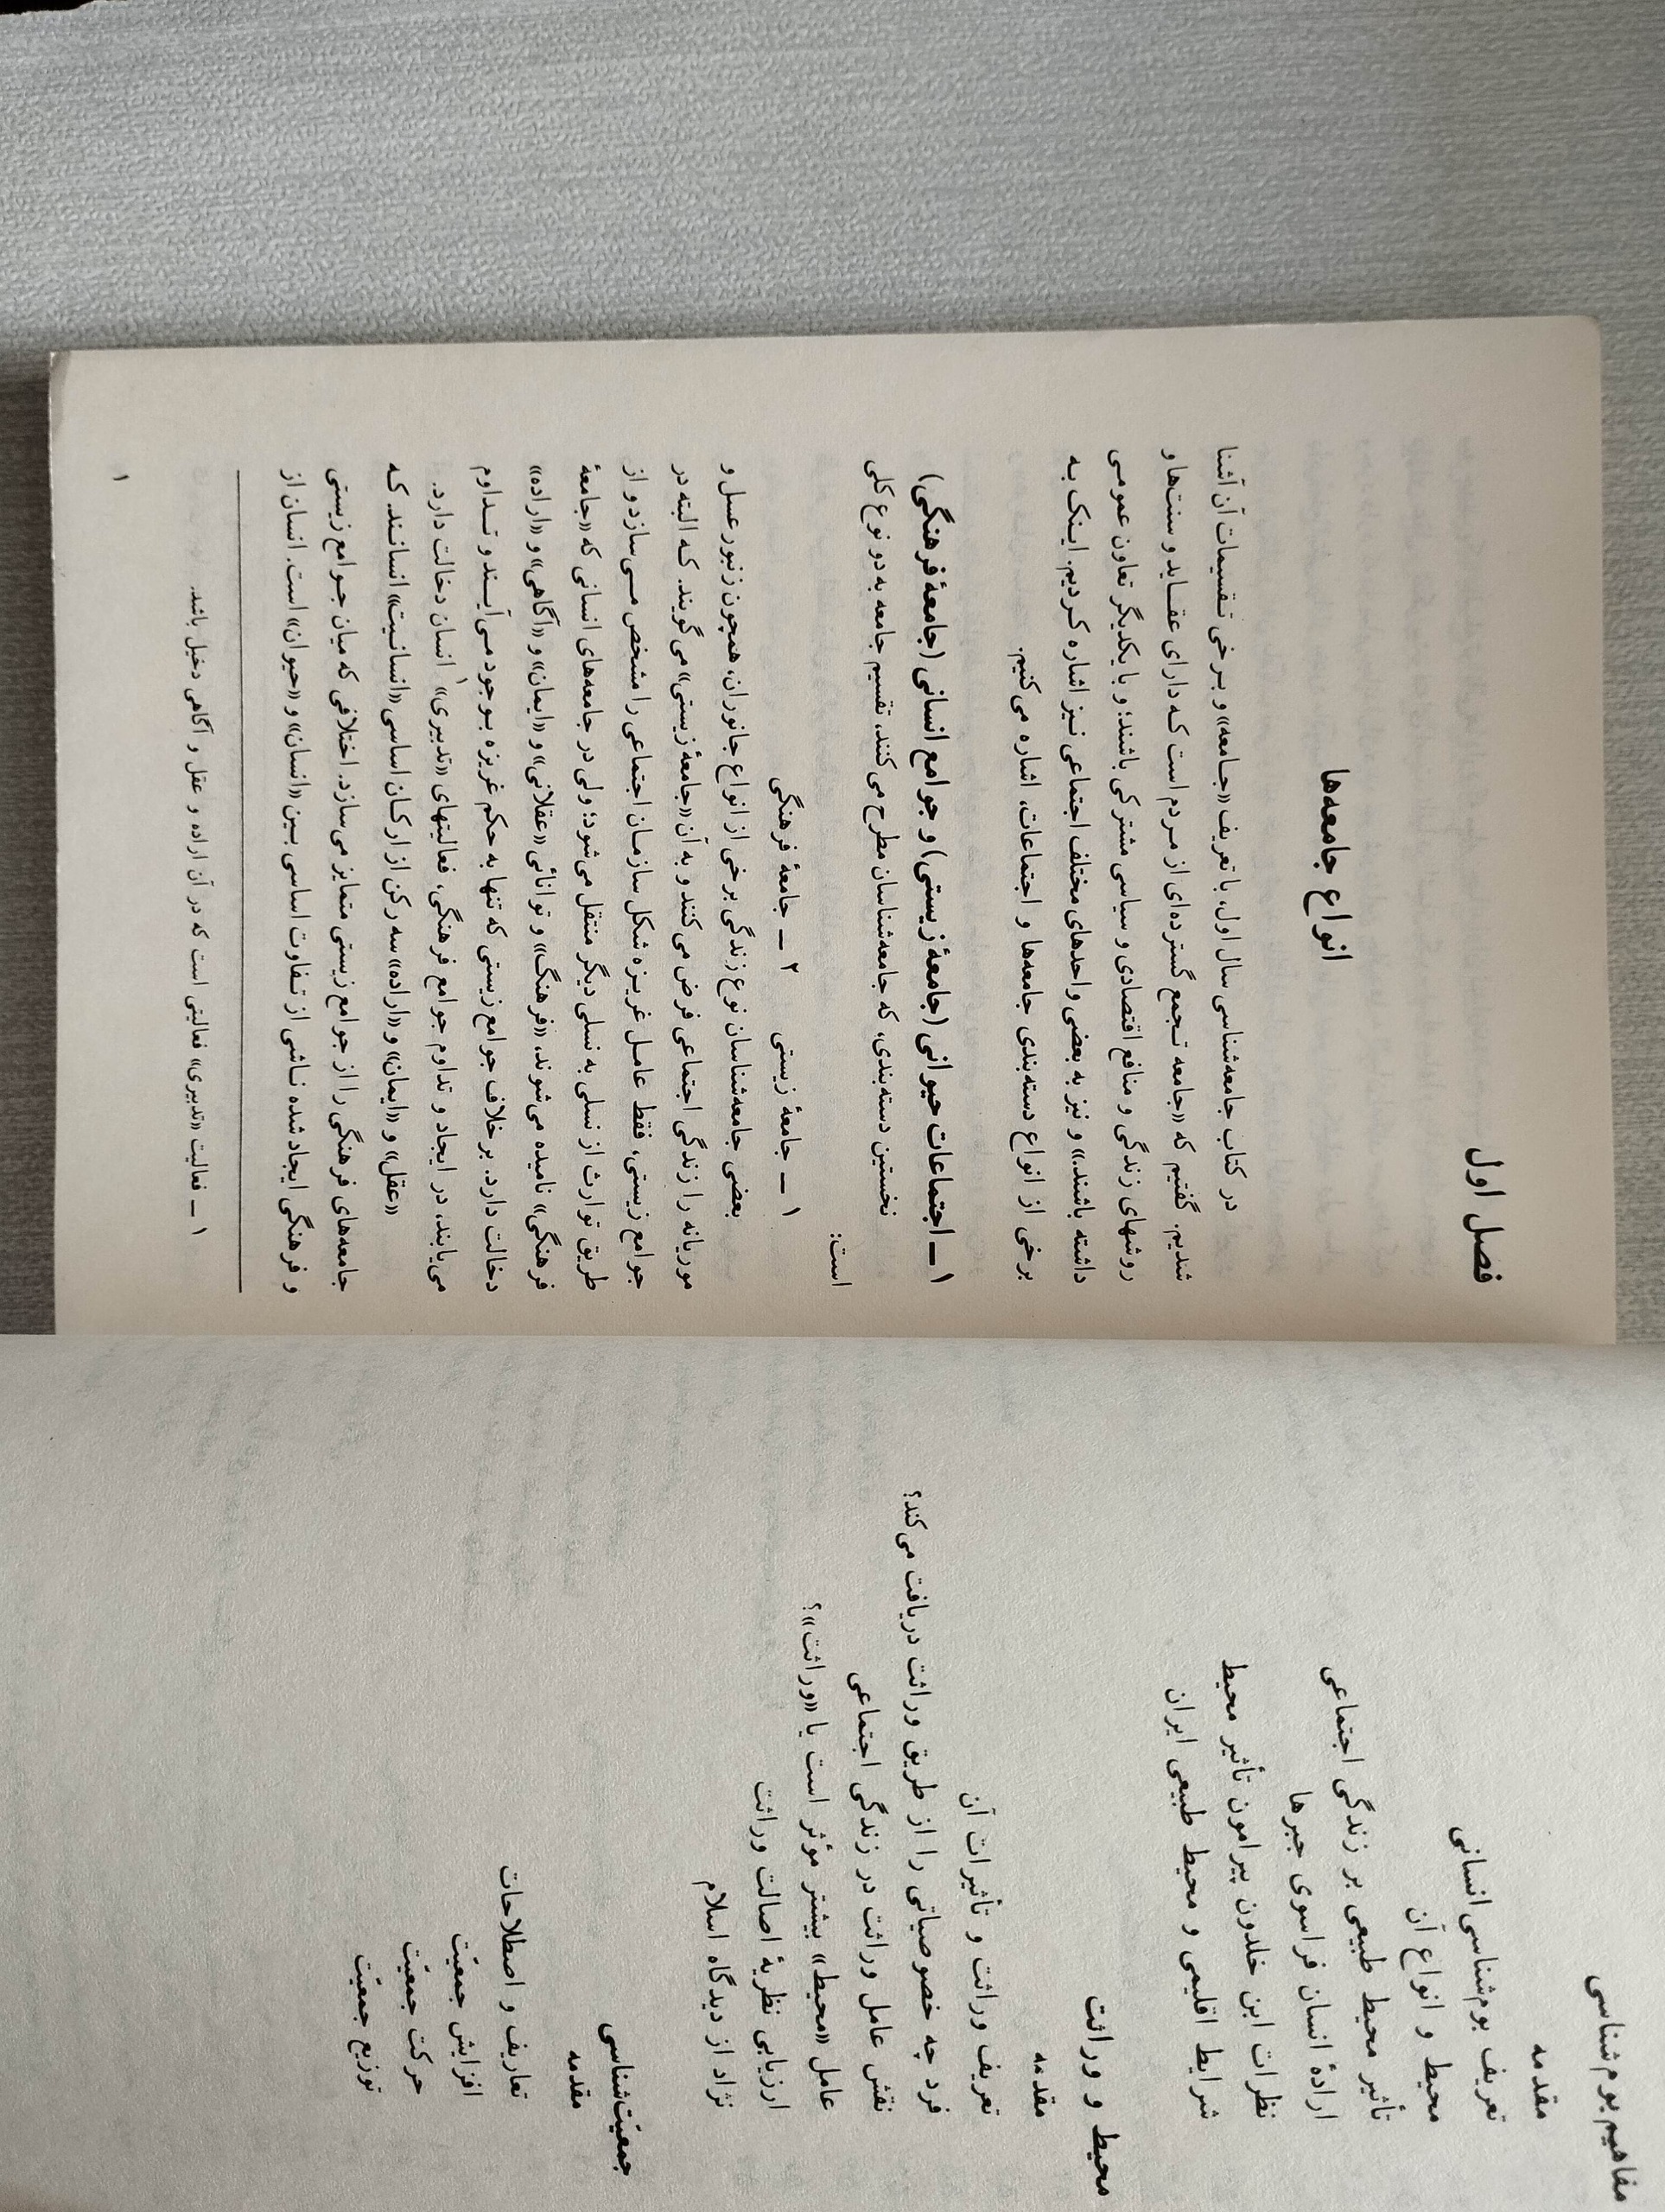 مفاهیم بوم‌شناسی
مقدمه
تعریف بوم‌شناسی انسانی
محیط و انواع آن
تأثیر محیط طبیعی بر زندگی اجتماعی
ارادهٔ انسان فراسوی جبرها
نظرات ابن خلدون پیرامون تأثیر محیط
شرایط اقلیمی و محیط طبیعی ایران
محیط و وراثت
مقدمه
تعریف وراثت و تأثیرات آن
فرد چه خصوصیاتی را از طریق وراثت دریافت می‌کند؟
نقش عامل وراثت در زندگی اجتماعی
عامل «محیط» بیشتر مؤثر است یا «وراثت»؟
ارزیابی نظریهٔ اصالت وراثت
نژاد از دیدگاه اسلام
جمعیّت‌شناسی
مقدمه
تعاریف و اصطلاحات
افزایش جمعیّت
حرکت جمعیّت
توزیع جمعیّت
فصل اول
انواع جامعه‌ها
در کتاب جامعه‌شناسی سال اول، با تعریف «جامعه» و برخی تقسیمات آن آشنا
شدیم. گفتیم که «جامعه تجمع گسترده‌ای از مردم است که دارای عقاید و سنت‌ها و
روشهای زندگی و منافع اقتصادی و سیاسی مشترکی باشند؛ و با یکدیگر تعاون عمومی
داشته باشند.» و نیز به بعضی واحدهای مختلف اجتماعی نیز اشاره کردیم. اینک به
برخی از انواع دسته‌بندی جامعه‌ها و اجتماعات، اشاره می‌کنیم.
۱ ــ اجتماعات حیوانی (جامعهٔ زیستی) و جوامع انسانی (جامعهٔ فرهنگی)
نخستین دسته‌بندی، که جامعه‌شناسان مطرح می‌کنند، تقسیم جامعه به دو نوع کلی
است:
۱ ــ جامعهٔ زیستی ۲ ــ جامعهٔ فرهنگی
بعضی جامعه‌شناسان نوع زندگی برخی از انواع جانوران، همچون زنبور عسل و
موریانه را زندگی اجتماعی فرض می‌کنند و به آن «جامعهٔ زیستی» می‌گویند. که البته در
جوامع زیستی، فقط عامل غریزه شکل سازمان اجتماعی را مشخص می‌سازد و از
طریق توارث از نسلی به نسلی دیگر منتقل می‌شود؛ ولی در جامعه‌های انسانی که «جامعهٔ
فرهنگی» نامیده می‌شوند، «فرهنگ» و توانائی «عقلانی» و «ایمان» و «آگاهی» و «اراده»
دخالت دارد. برخلاف جوامع زیستی که تنها به حکم غریزه بوجود می‌آیند و تداوم
می‌یابند، در ایجاد و تداوم جوامع فرهنگی، فعالیتهای «تدبیری»۱ انسان دخالت دارد.
«عقل» و «ایمان» و «اراده» سه رکن از ارکان اساسی «انسانیت» انسانند. که
جامعه‌های فرهنگی را از جوامع زیستی متمایز می‌سازد. اختلافی که میان جوامع زیستی
و فرهنگی ایجاد شده ناشی از تفاوت اساسی بین «انسان» و «حیوان» است. انسان از
۱ ــ فعالیت «تدبیری» فعالیتی است که در آن اراده و عقل و آگاهی دخیل باشد.
۱